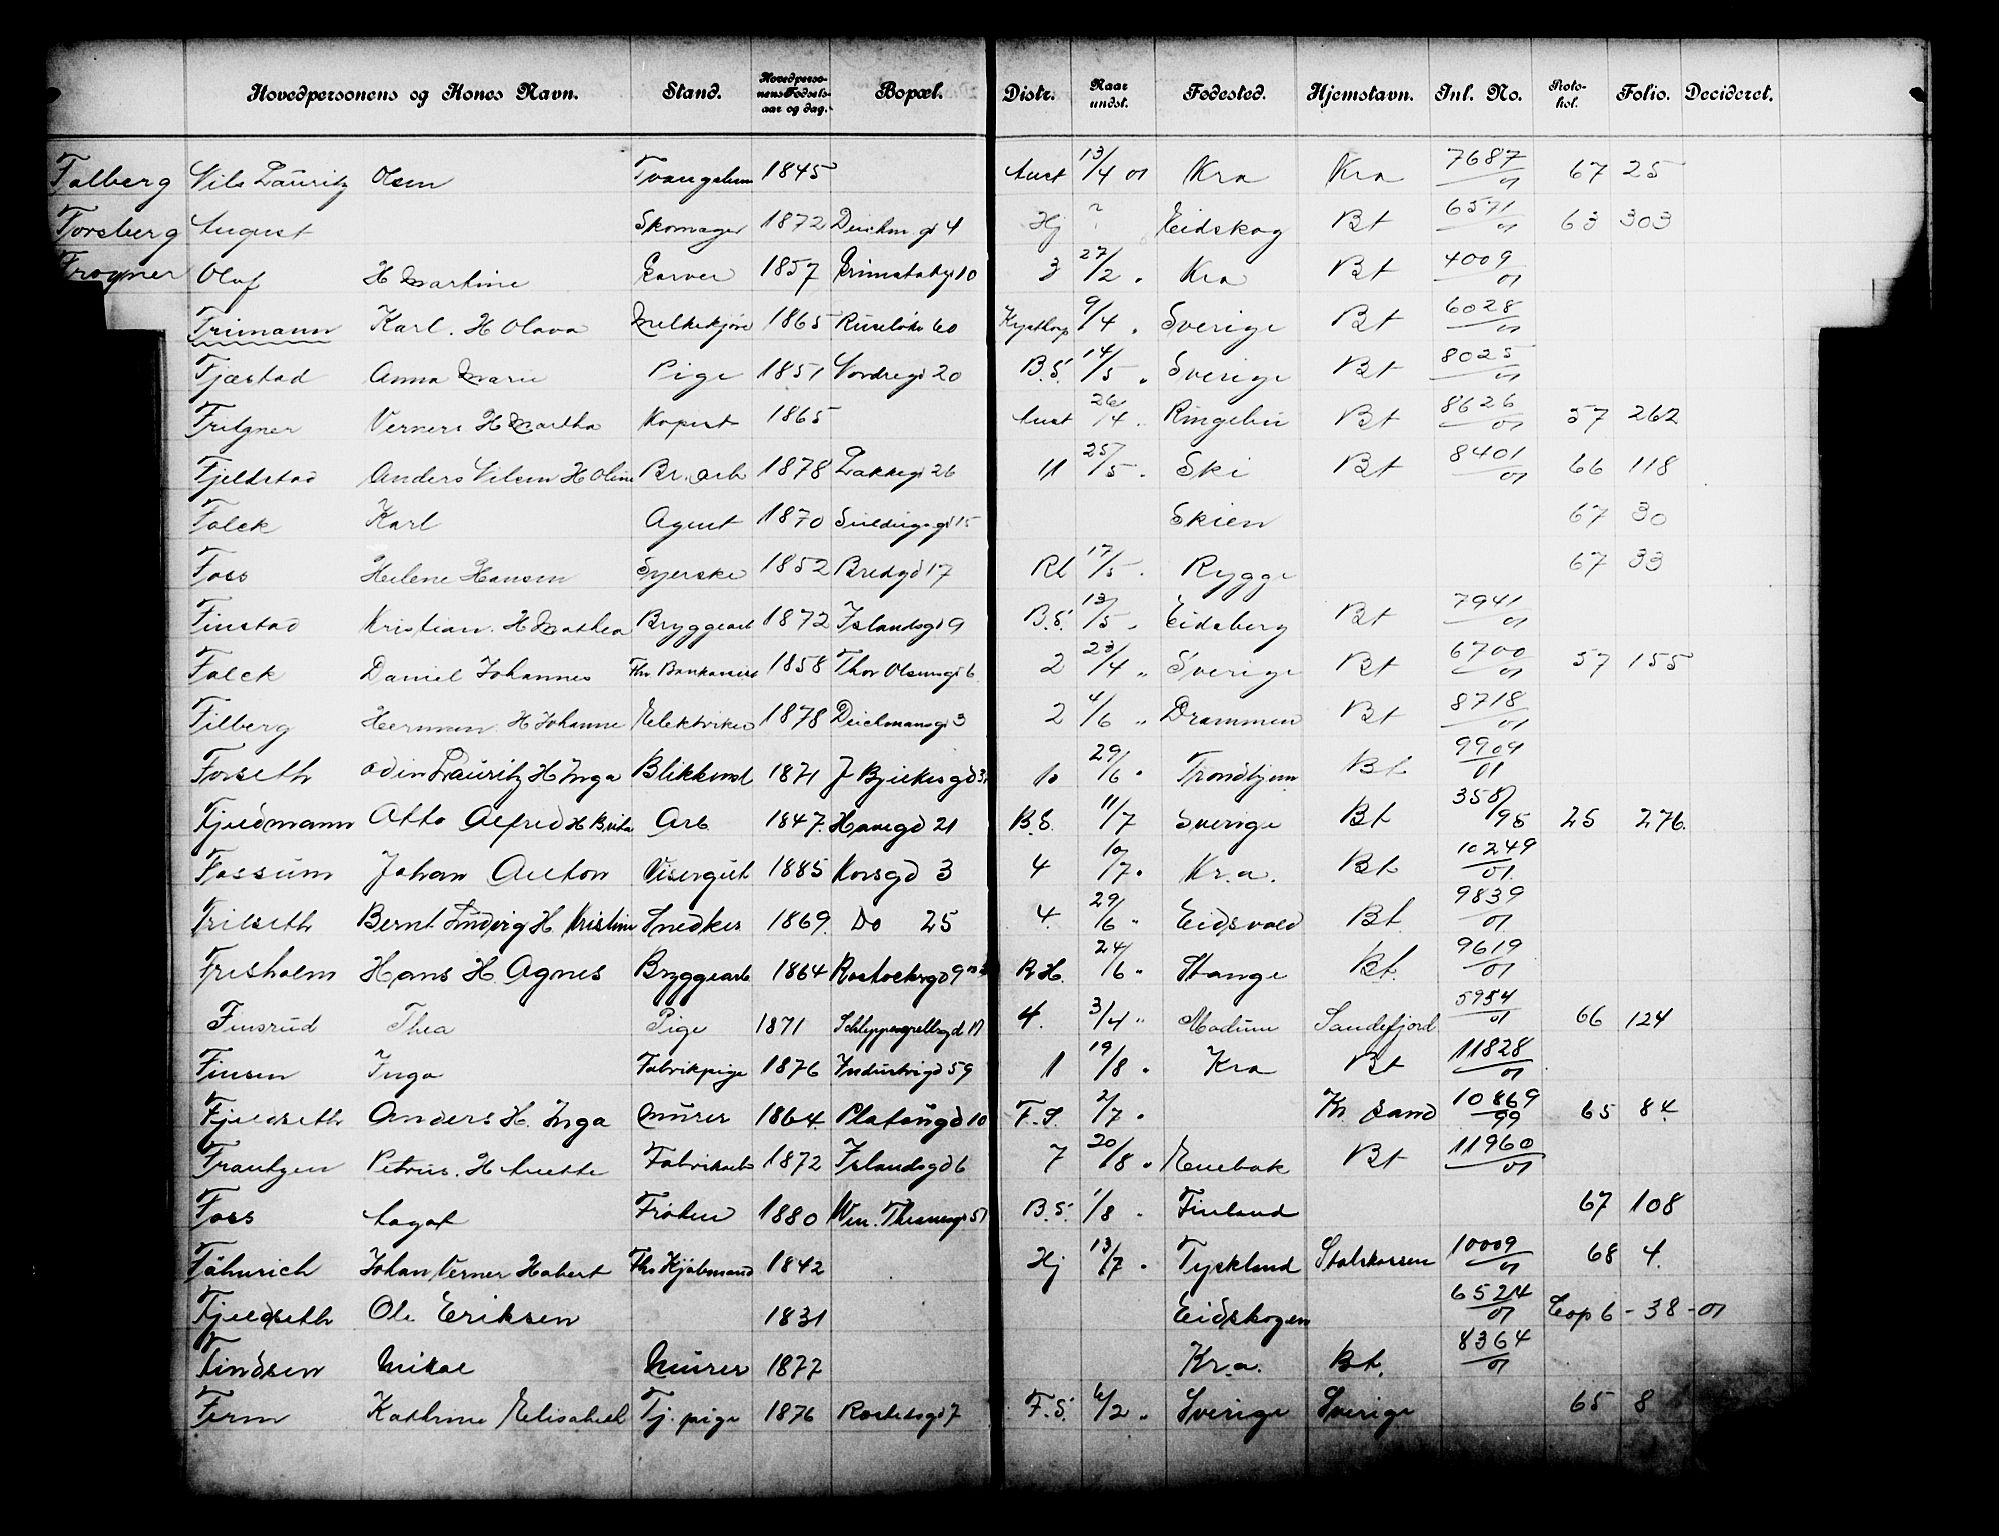 Hovedpersonens og Kones Navn. Stand. Hovedpersonens Fødselsaar og dag. Bopæl. Distr. Naar undst. Fødested. Hjemstavn. Inl. No. Protokol. Folio. Decideret.
Falberg Nils Lauritz Olsen 1845 Aust 13/4 01 Kra Kra 7687/01 67 25
Forsberg August Skomager 1872 Deichm.gd 4 Hj ? Eidskog Bt 6571/01 63 303
Frogner Olaf H Martine Garver 1857 Grimstadgd 10 3 27/2 " Kra Bt 4009/01
Frimann Karl. H Olava Melkekjøre 1865 Ruseløkv 60 9/4 " Sverige Bt 6028/01
Fjæstad Anna Marie Pige 1851 Nordregd 20 B.S. 14/5 " Sverige Bt 8025/01
Fritzner Verner H Martha Kopist 1865 Aust 26/4 " Ringebu Bt 8626/01 57 262
Fjeldstad Anders Nilsen H Oline Br. arb 1878 Lakkegd 26 11 25/5 " Ski Bt 8401/01 66 118
Falck Karl Agent 1870 15 Skien 67 30
Foss Helene Hansen Syerske 1852 Bredgd 17 Rl 17/5 " Rygge 67 33
Finstad Kristian. H Mathea Bryggearb 1872 Islandsgd 9 B.S. 13/5 " Eidsberg Bt 7941/01
Falck Daniel Johannes Fhv Bankasserer 1858 Thor Olsensgd 6 2 23/4 " Sverige Bt 6700/01 57 155
Filberg Herman H Johanne Elektriker 1878 Deichmansgd 3 2 4/6 " Drammen Bt 8718/01
Forseth Odin Lauritz H Inga Blikkensl 1871 J Bjerkesgd 3 10 29/6 " Trondhjem Bt 9909/01
Fjeldmann Otto Alfred H Brita Arb 1847. Havegd 21 B.S. 11/7 Sverige Bt 358/95 25 276.
Fossum Johan Anton Visergut 1885 Korsgd 3 4 10/7 " Kr.a. Bt 10249/01.
Frilseth Bernt Ludvig H Kristine Snedker 1869. Do 25 4. 29/6 " Eidsvold Bt. 9839/01
Frisholm Hans H. Agnes Bryggearb 1864 Rostockergd 9 B.H. 24/6 " Stange Bt. 9619/01
Finsrud Thea Pige 1871 Schleppegrellsgd 17 4. 3/4 " Modum Sandefjord 5954/01 66 124
Finsen Inga Fabrikpige 1876 Industrigd 59 1 19/8 " Kra Bt 11828/01
Fjeldseth Anders H. Inga Murer 1864. Platougd 10 F.S. 2/7 " Kr. Sand 10869/99 65 84.
Frantzen Petrus. H Anette Fabrikarb 1872 Islandsgd 6 7 20/8 " Enebak Bt 11960/01
Foss Aagot Frøken 1880 Wm. Thranesgd 51 B.S. 1/8 " Finland 67 108
Fähnrich Johan Verner Hobert Fhv Kjøbmand 1842 Hj 13/7 " Tyskland Statskassen 10009/01 68 4.
Fjeldseth Ole Eriksen 1831 Eidskogen 6524/01 Cop 6 - 38 - 01
Findsen Mikal Murer 1877 Kr.a. Bt. 8364/01
Ferm Kathrine Elisabeth Tj. pige 1876 Rostedsgd 7 F.S. 6/2 " Sverige Sverige 65 8